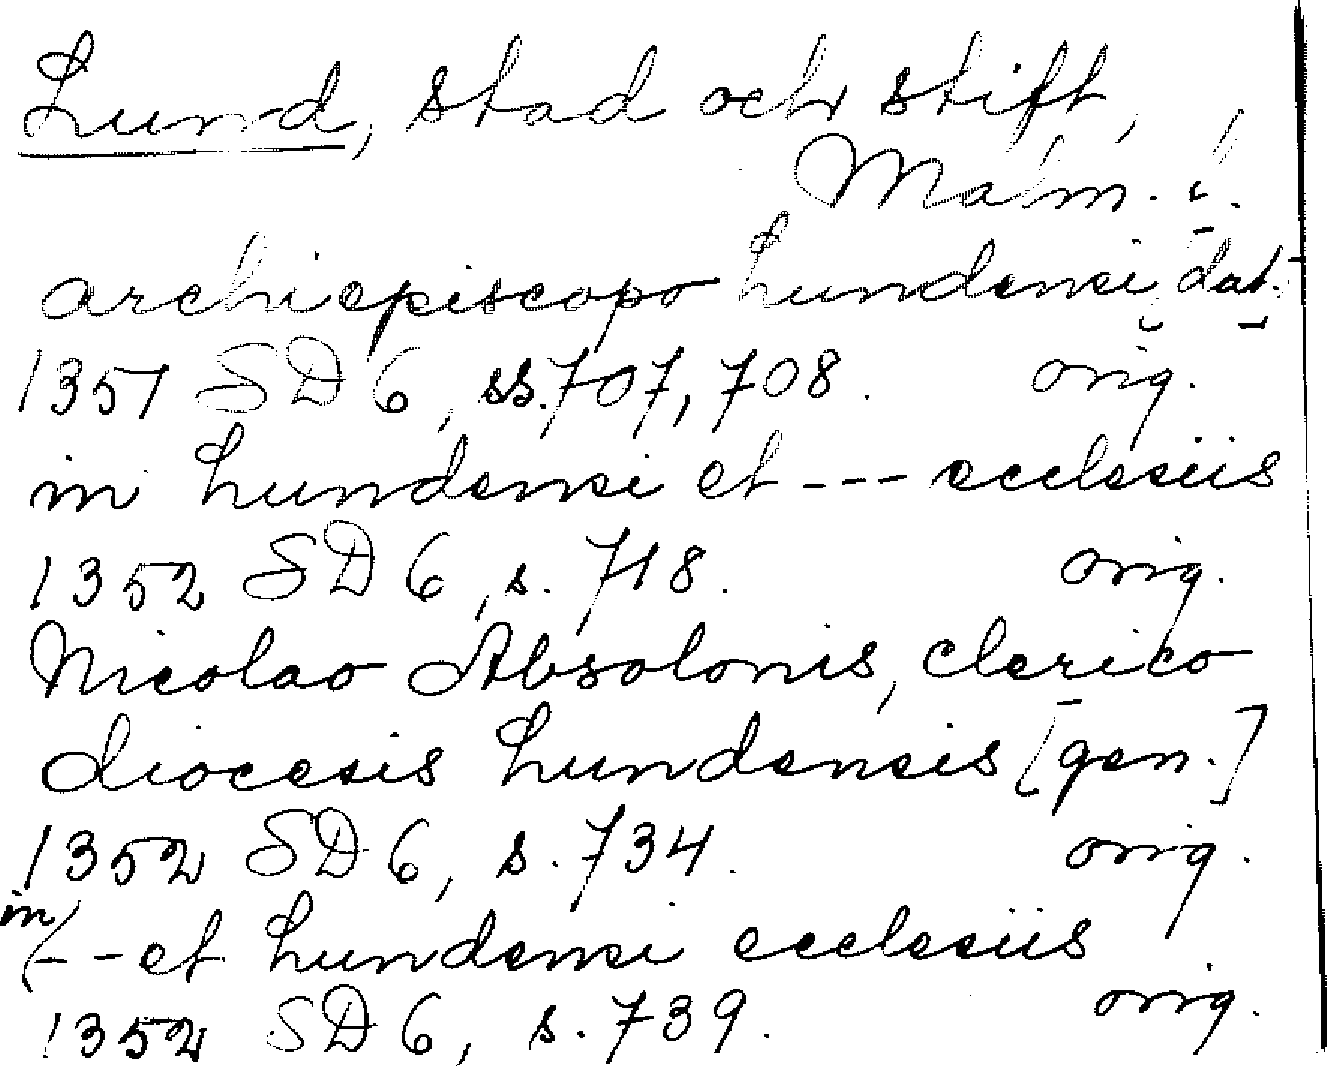 Lund, stad och stift,
Malm. l.
archiepiscopo Lundensi, dat.
1351 SD 6, ss. 707, 708. orig.
in Lundensi et --- ecclesiis
1352 SD 6, s. 718. orig.
Nicolao Absolonis, clerico
diocesis Lundensis [gen.]
1352 SD 6, s. 734. orig.
in -- et Lundensi ecclesiis
1352 SD 6, s. 739. orig.